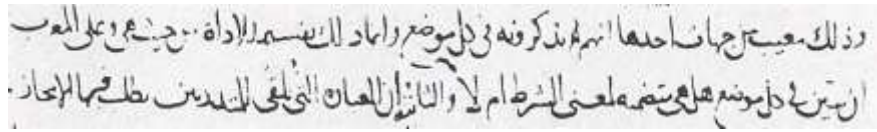 وذلك معيب من جهات احدها انهم يذكرونه في كل موضع وانما ذلك تفسير للاداة من حيث هي وعلى المعرب
ان يبين في كل موضع هل هي متضمنة لمعنى الشرط ام لا والثاني ان العبارة التي تلقى للمتدربين يطلب فيها الايجاز